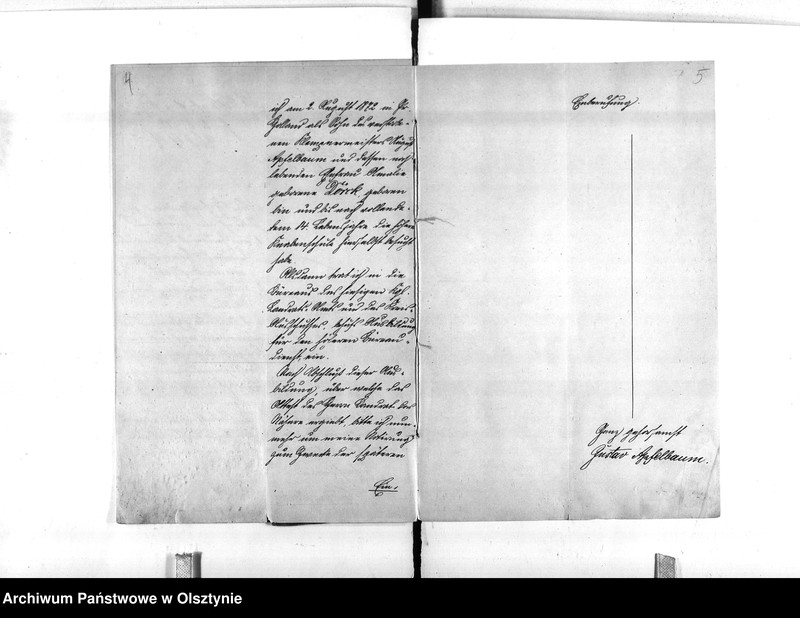 4
ich am 2. August 1872 in Pr.
Holland als Sohn des verstorbe-
nen Klempnermeisters August
Apfelbaum und dessen noch
lebenden Ehefrau Amalie
geborene Dörck, geboren
bin und bis nach vollende-
tem 14. Lebensjahre die höhere
Knabenschule hierselbst besucht
habe.
Alsdann trat ich in die
Bureaus des hiesigen Kgl.
Landrats-Amts und des Kreis-
Ausschusses, behufs Ausbildung
für den höheren Bureau-
dienst, ein.
Nach Abschluß dieser Aus-
bildung, über welche das
Attest des Herrn Landrat das
Nähere ergiebt, bitte ich nun-
mehr um meine Notirung
zum Zwecke der späteren
Ein-
5
Einberufung.
Ganz gehorsamst
Gustav Apfelbaum.
Archiwum Państwowe w Olsztynie